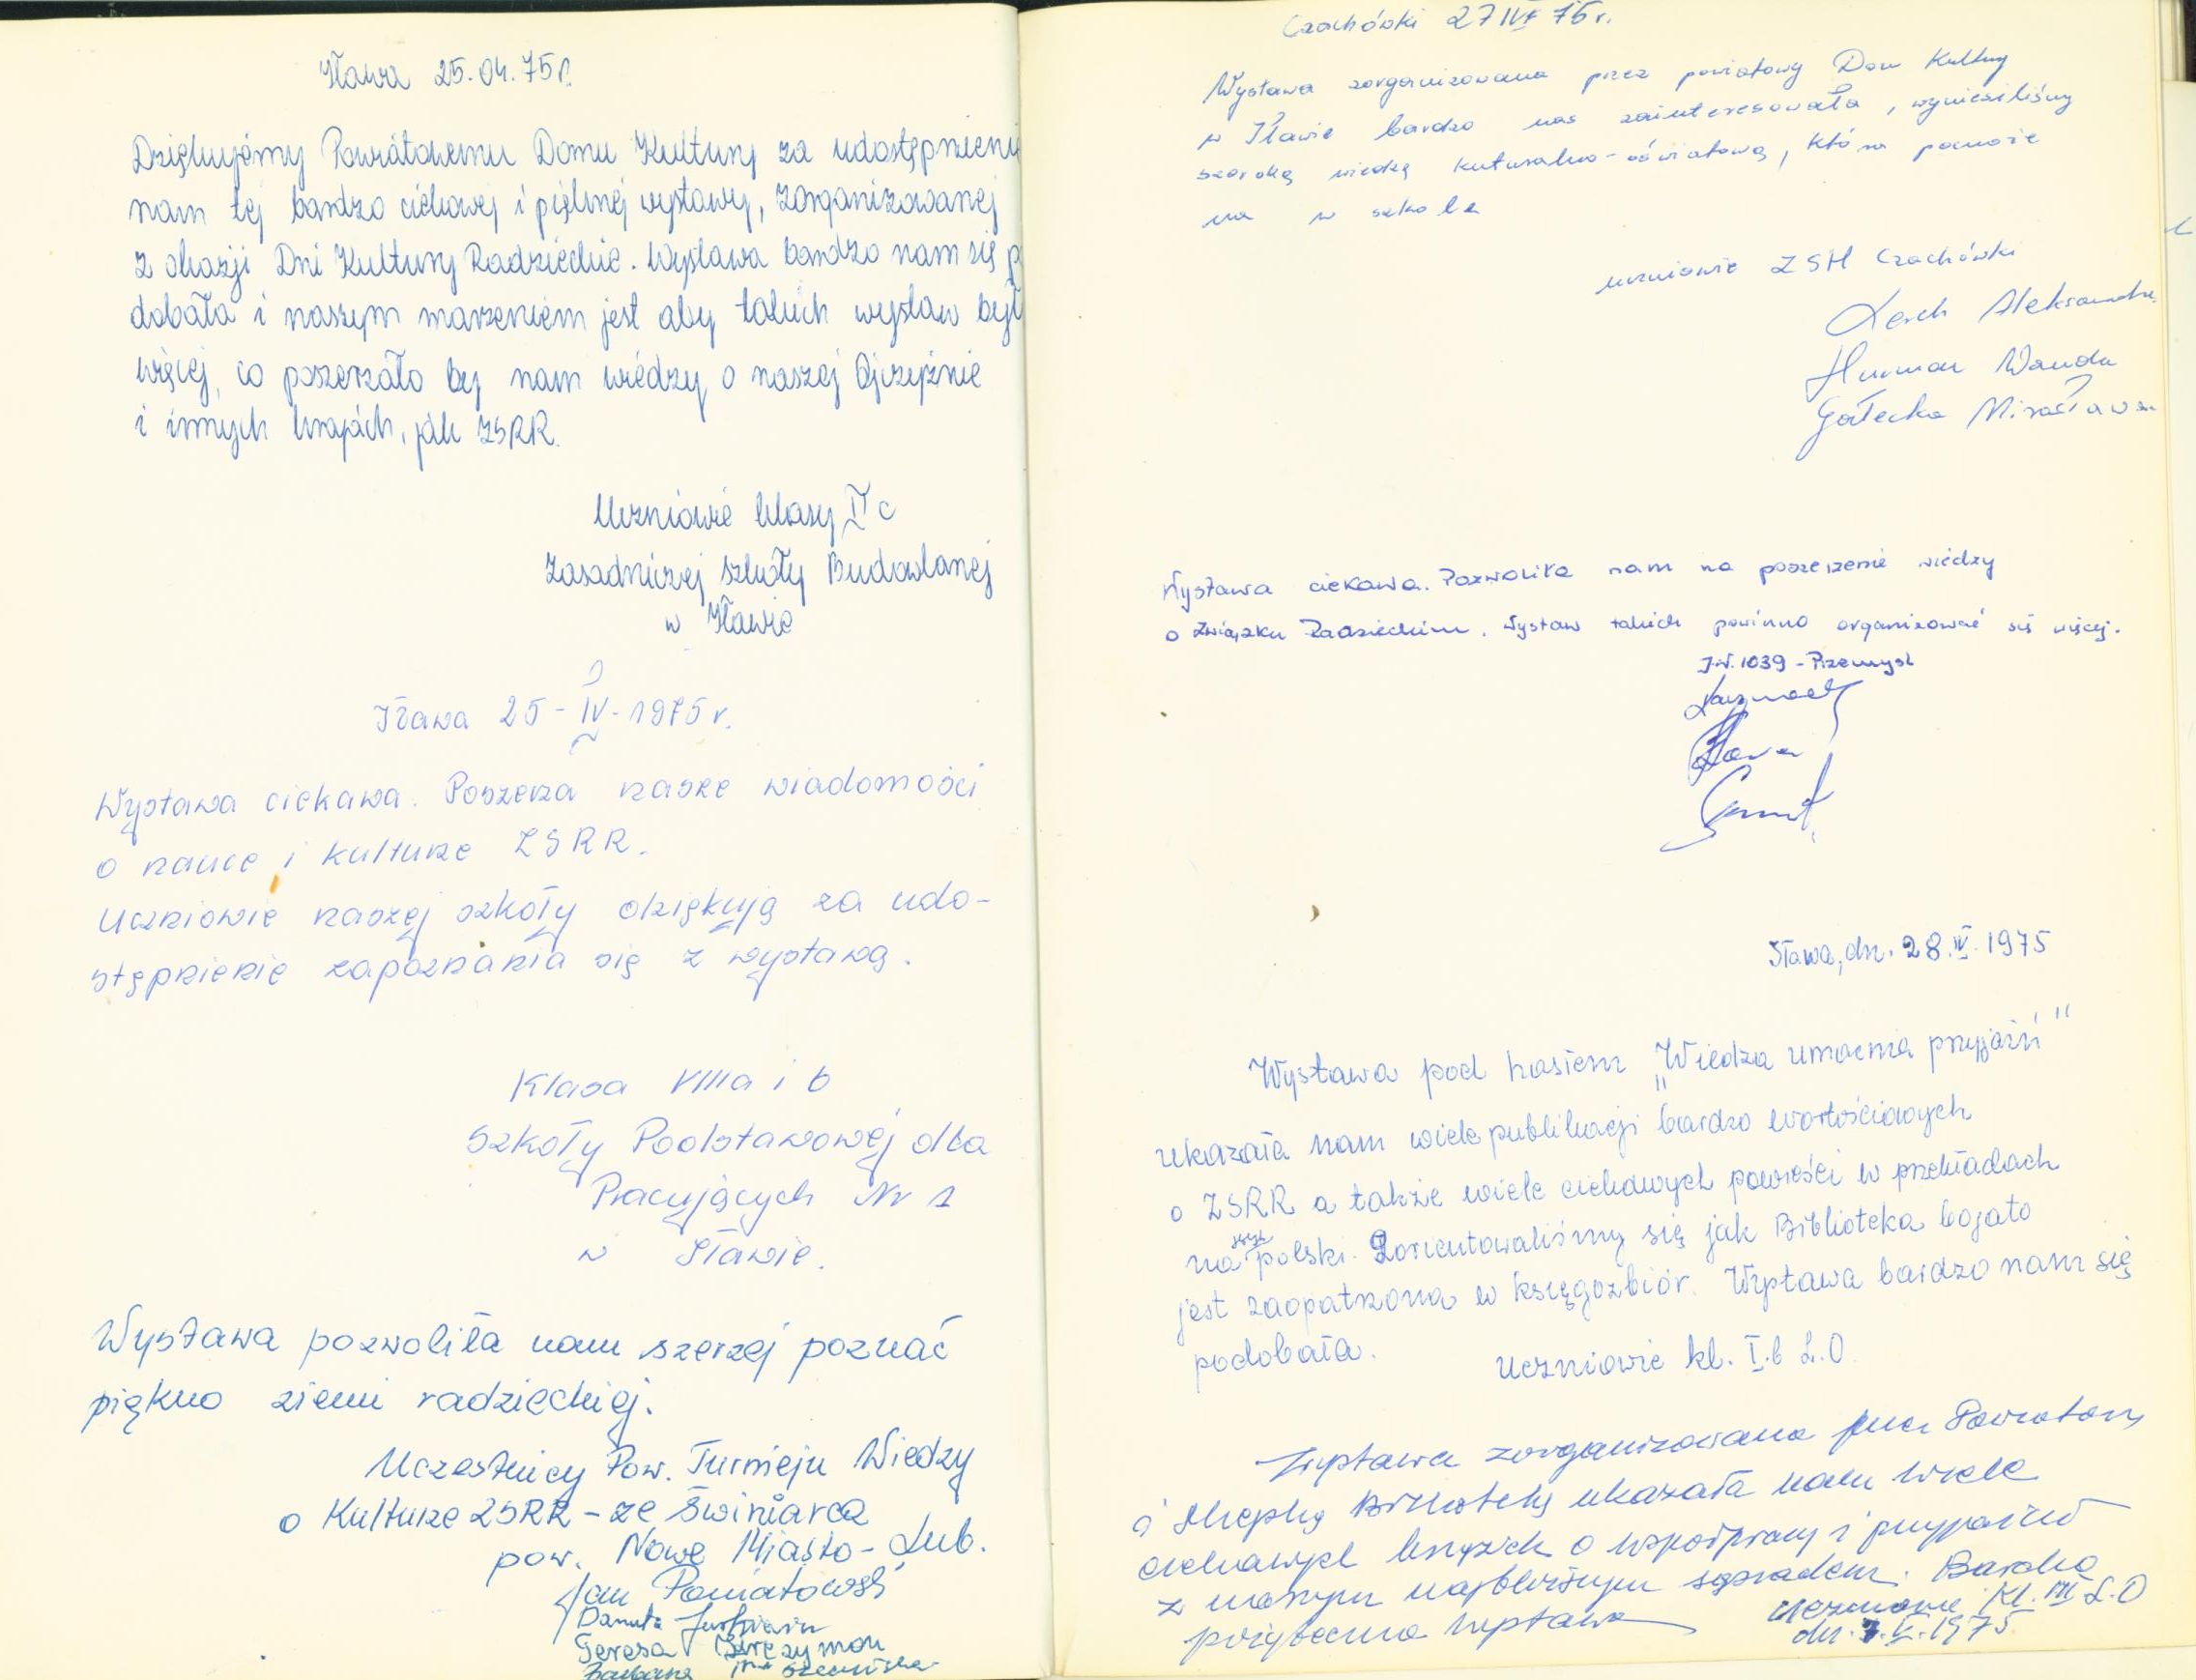 Iława 25.04.75r.
Dziękujemy Powiatowemu Domu Kultury za udostępnienie
nam tej bardzo ciekawej i pięknej wystawy, zorganizowanej
z okazji Dni Kultury Radzieckie. Wystawa bardzo nam się p
dobała i naszym marzeniem jest aby takich wystaw było
więcej, co poszerzało by nam wiedzy o naszej Ojczyźnie
i innych krajach, jak ZSRR.
Uczniowie klasy II c
Zasadniczej szkoły Budowlanej
w Iławie
Iława 25-IV-1975r.
Wystawa ciekawa. Poszerza nasze wiadomości
o nauce i kulturze ZSRR.
Uczniowie naszej szkoły dziękują za udo-
stępnienie zapoznania się z wystawą.
Klasa VIIIa i b
Szkoły Podstawowej dla
Pracujących Nr 1
w Iławie.
Wystawa pozwoliła nam szerzej poznać
piękno ziemi radzieckiej.
Uczestnicy Pow. Turnieju Wiedzy
o Kulturze ZSRR - ze Świniarca
pow. Nowe Miasto - Lub.
Jan Poniatowski
Danuta
Teresa
Barbara
Czachówki 27 IV 75r.
Wystawa zorganizowana przez powiatowy Dom Kultury
w Iławie bardzo nas zainteresowała, wynieśliśmy
szeroką wiedzę kuturalno-oświatową, która pomoże
na w szkole
uczniowie ZSR Czachówki
Lerch Aleksandra
Hurman Wanda
Gołecka Mirosława
Wystawa ciekawa. Pozwoliła nam na poszerzenie wiedzy
o Związku Radzieckim. Wystaw takich powinno organizować się więcej.
J.W. 1039 - Przemyśl
Iława, dn. 28.IV.1975
Wystawa pod hasłem "Wiedza umacnia przyjaźń"
ukazała nam wiele publikacji bardzo wartościowych
o ZSRR a także wiele ciekawych powieści w przekładach
na język polski. Zorientowaliśmy się jak Biblioteka bogato
jest zaopatrzona w księgozbiór. Wystawa bardzo nam się
podobała.
Uczniowie kl. I.b L.O.
Wystawa zorganizowana przez Powiatową
i Miejską Bibliotekę ukazała nam wiele
ciekawych książek o współpracy i przyjaźni
z naszym najbliższym sąsiadem. Bardzo
pożyteczna wystawa
Uczniowie kl. III L.O
dn. 7.V.1975.